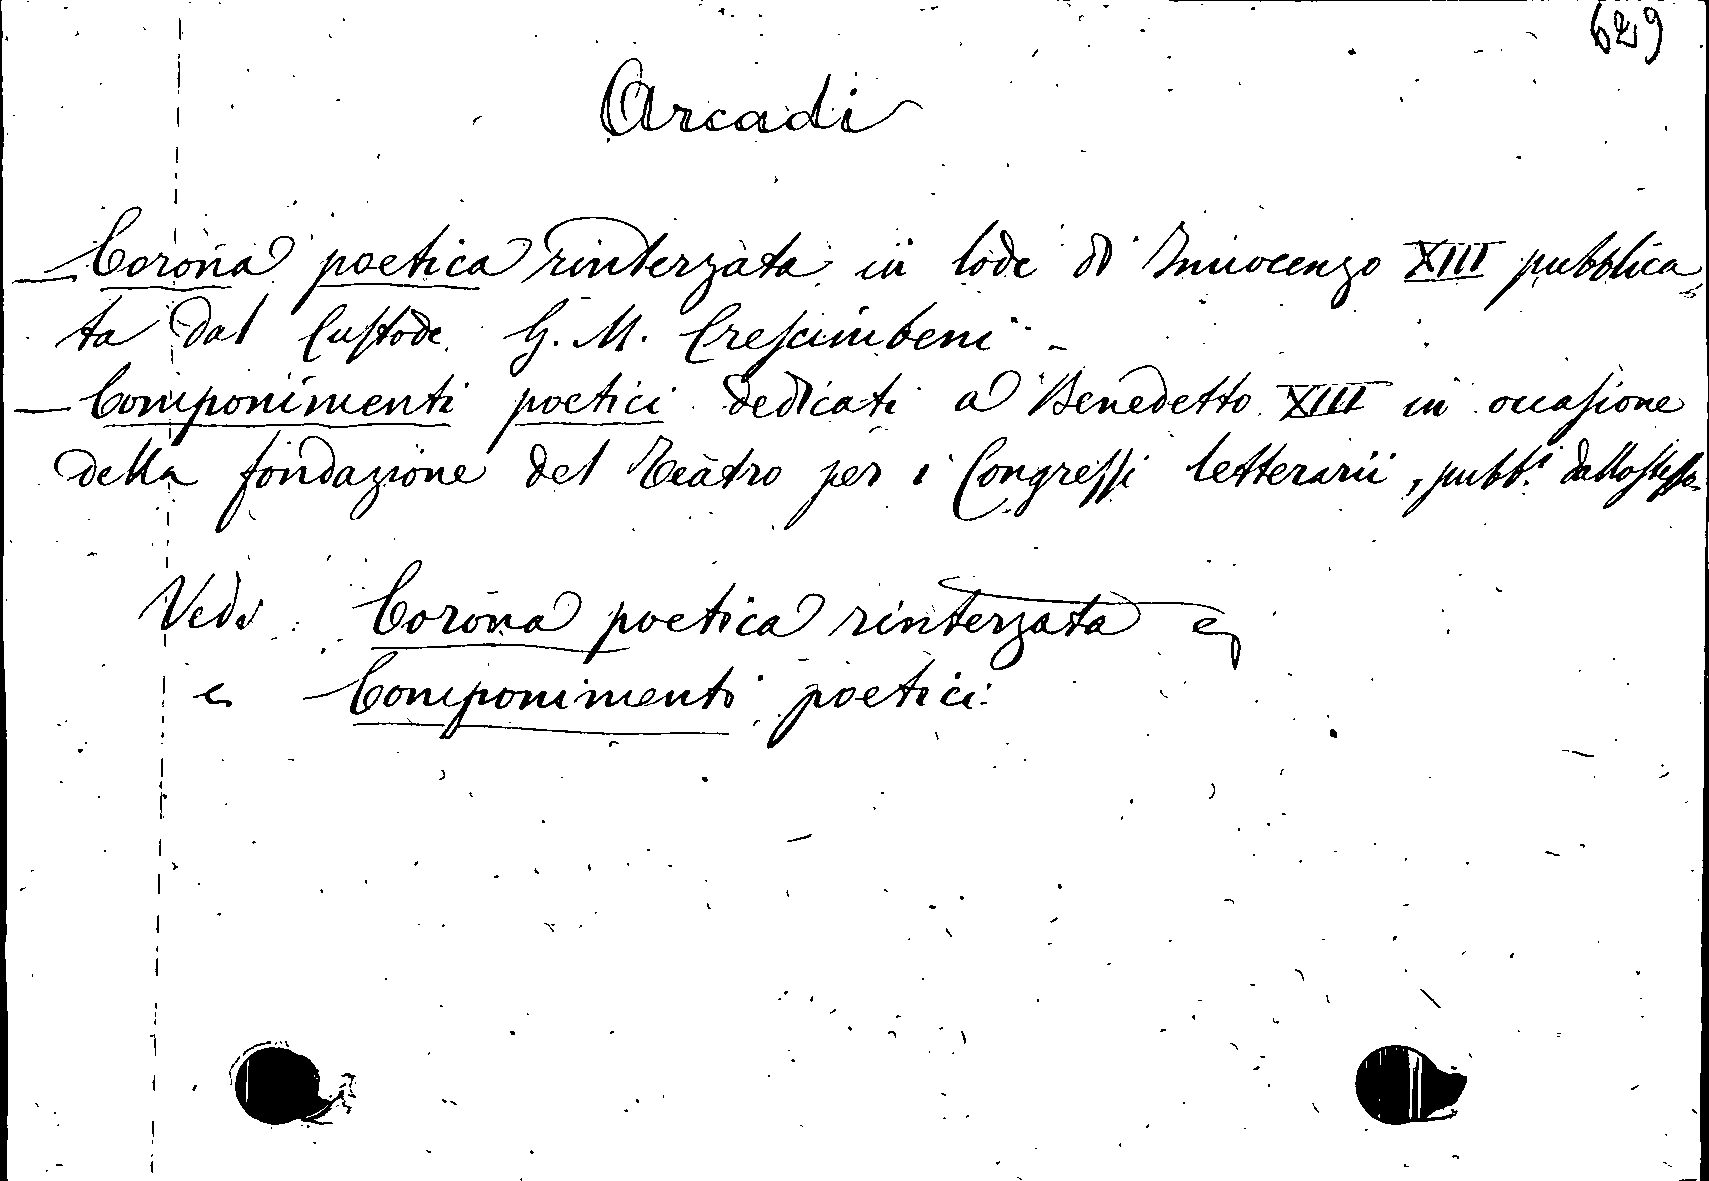 629
Arcadi
— Corona poetica rinterzata in lode di Innocenzo XIII pubblica-
ta dal Custode G. M. Crescimbeni -
— Componimenti poetici dedicati a Benedetto XIII in occasione
della fondazione del Teatro per i Congressi letterarii, pubb.i dallo stesso.
Vedi Corona poetica rinterzata e
e Componimenti poetici.